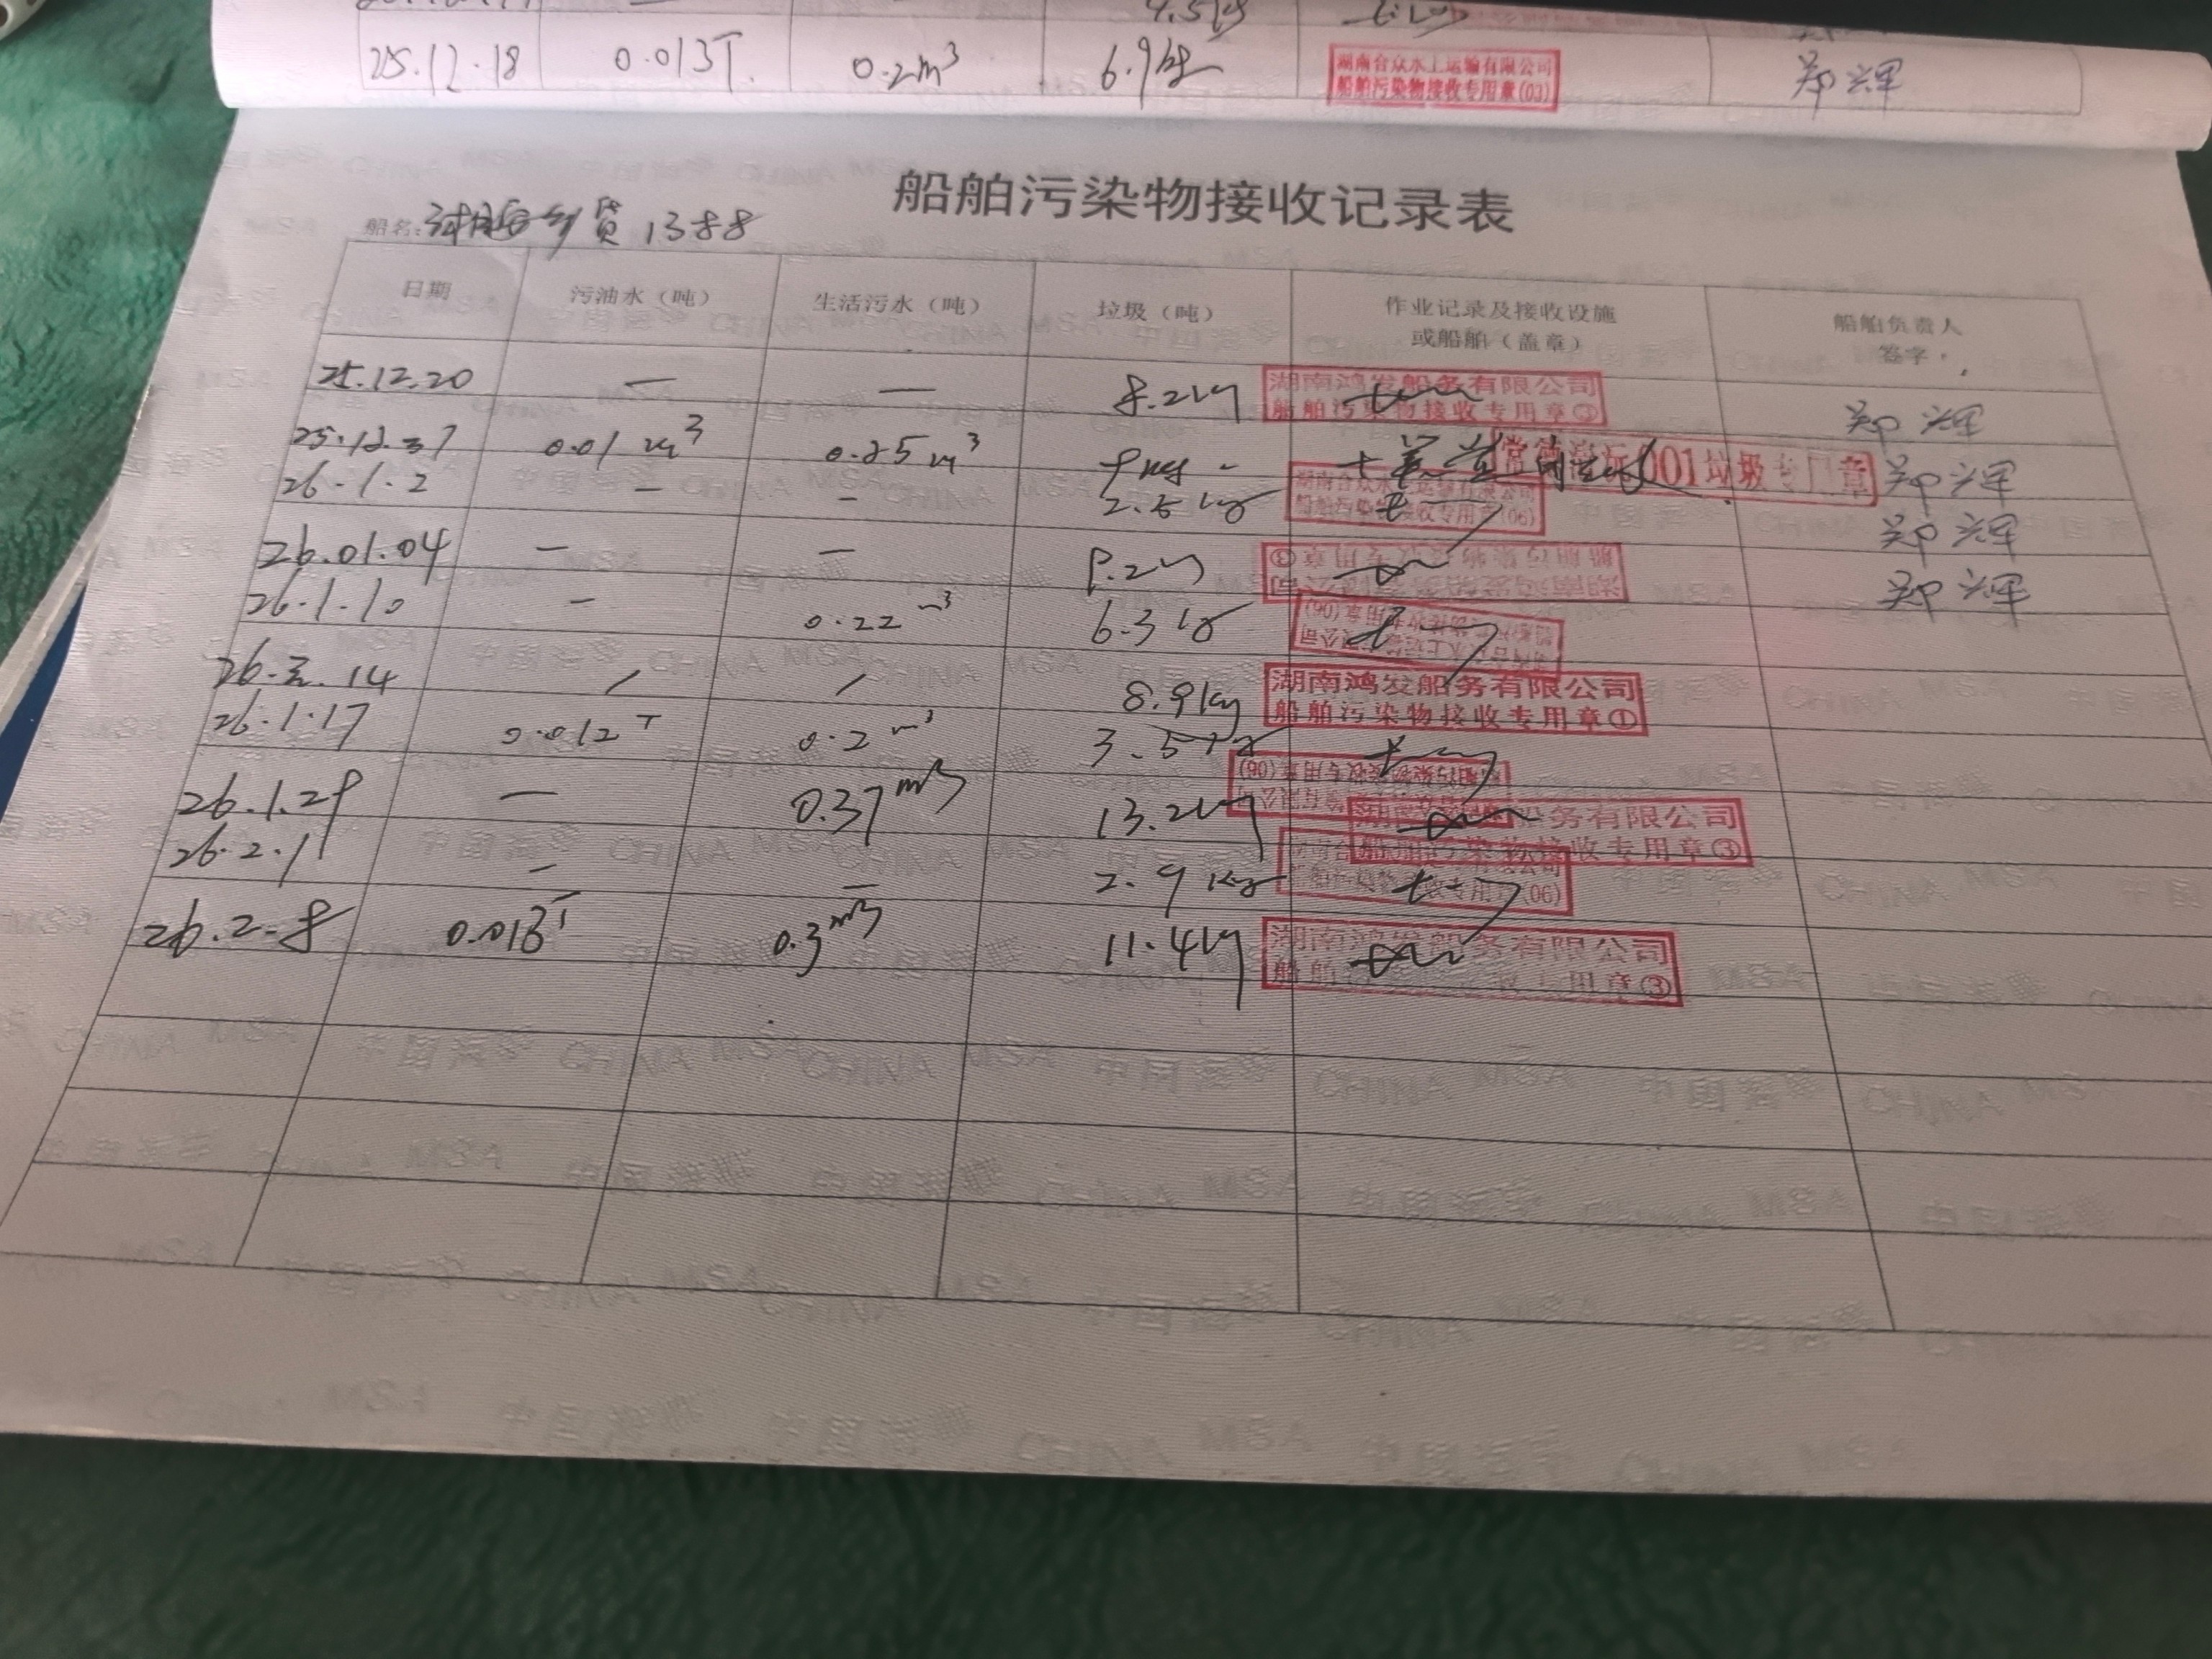 4.5kg
25.12.18 0.013T. 0.2m³ 6.9kg 湖南合众水上运输有限公司 郑辉
船舶污染物接收专用章(03)
船舶污染物接收记录表
船名: 货1388
日期 污油水（吨） 生活污水（吨） 垃圾（吨） 作业记录及接收设施 船舶负责人
或船舶（盖章） 签字
25.12.20 — — 8.2kg 湖南鸿发船务有限公司 郑辉
船舶污染物接收专用章③
25.12.31 0.01m³ 0.25m³ 001垃圾专用章 郑辉
26.1.2 - - 2.5kg 湖南合众水上运输有限公司 郑辉
船舶污染物接收专用章(06)
26.01.04 — — 8.2kg 湖南鸿发船务有限公司 郑辉
船舶污染物接收专用章③
26.1.10 - 0.22m³ 6.3kg 湖南合众水上运输有限公司
船舶污染物接收专用章(06)
26.元.14 / / 8.9kg 湖南鸿发船务有限公司
船舶污染物接收专用章①
26.1.17 0.012T 0.2m³ 3.5kg
船舶污染物接收专用章(06)
26.1.29 — 0.37m³ 13.2kg 湖南鸿发船务有限公司
船舶污染物接收专用章③
26.2.1 — — 2.9kg 船舶污染物接收专用章(06)
26.2.8 0.013T 0.3m³ 11.4kg 湖南鸿发船务有限公司
船舶污染物接收专用章③
中国海事 CHINA MSA